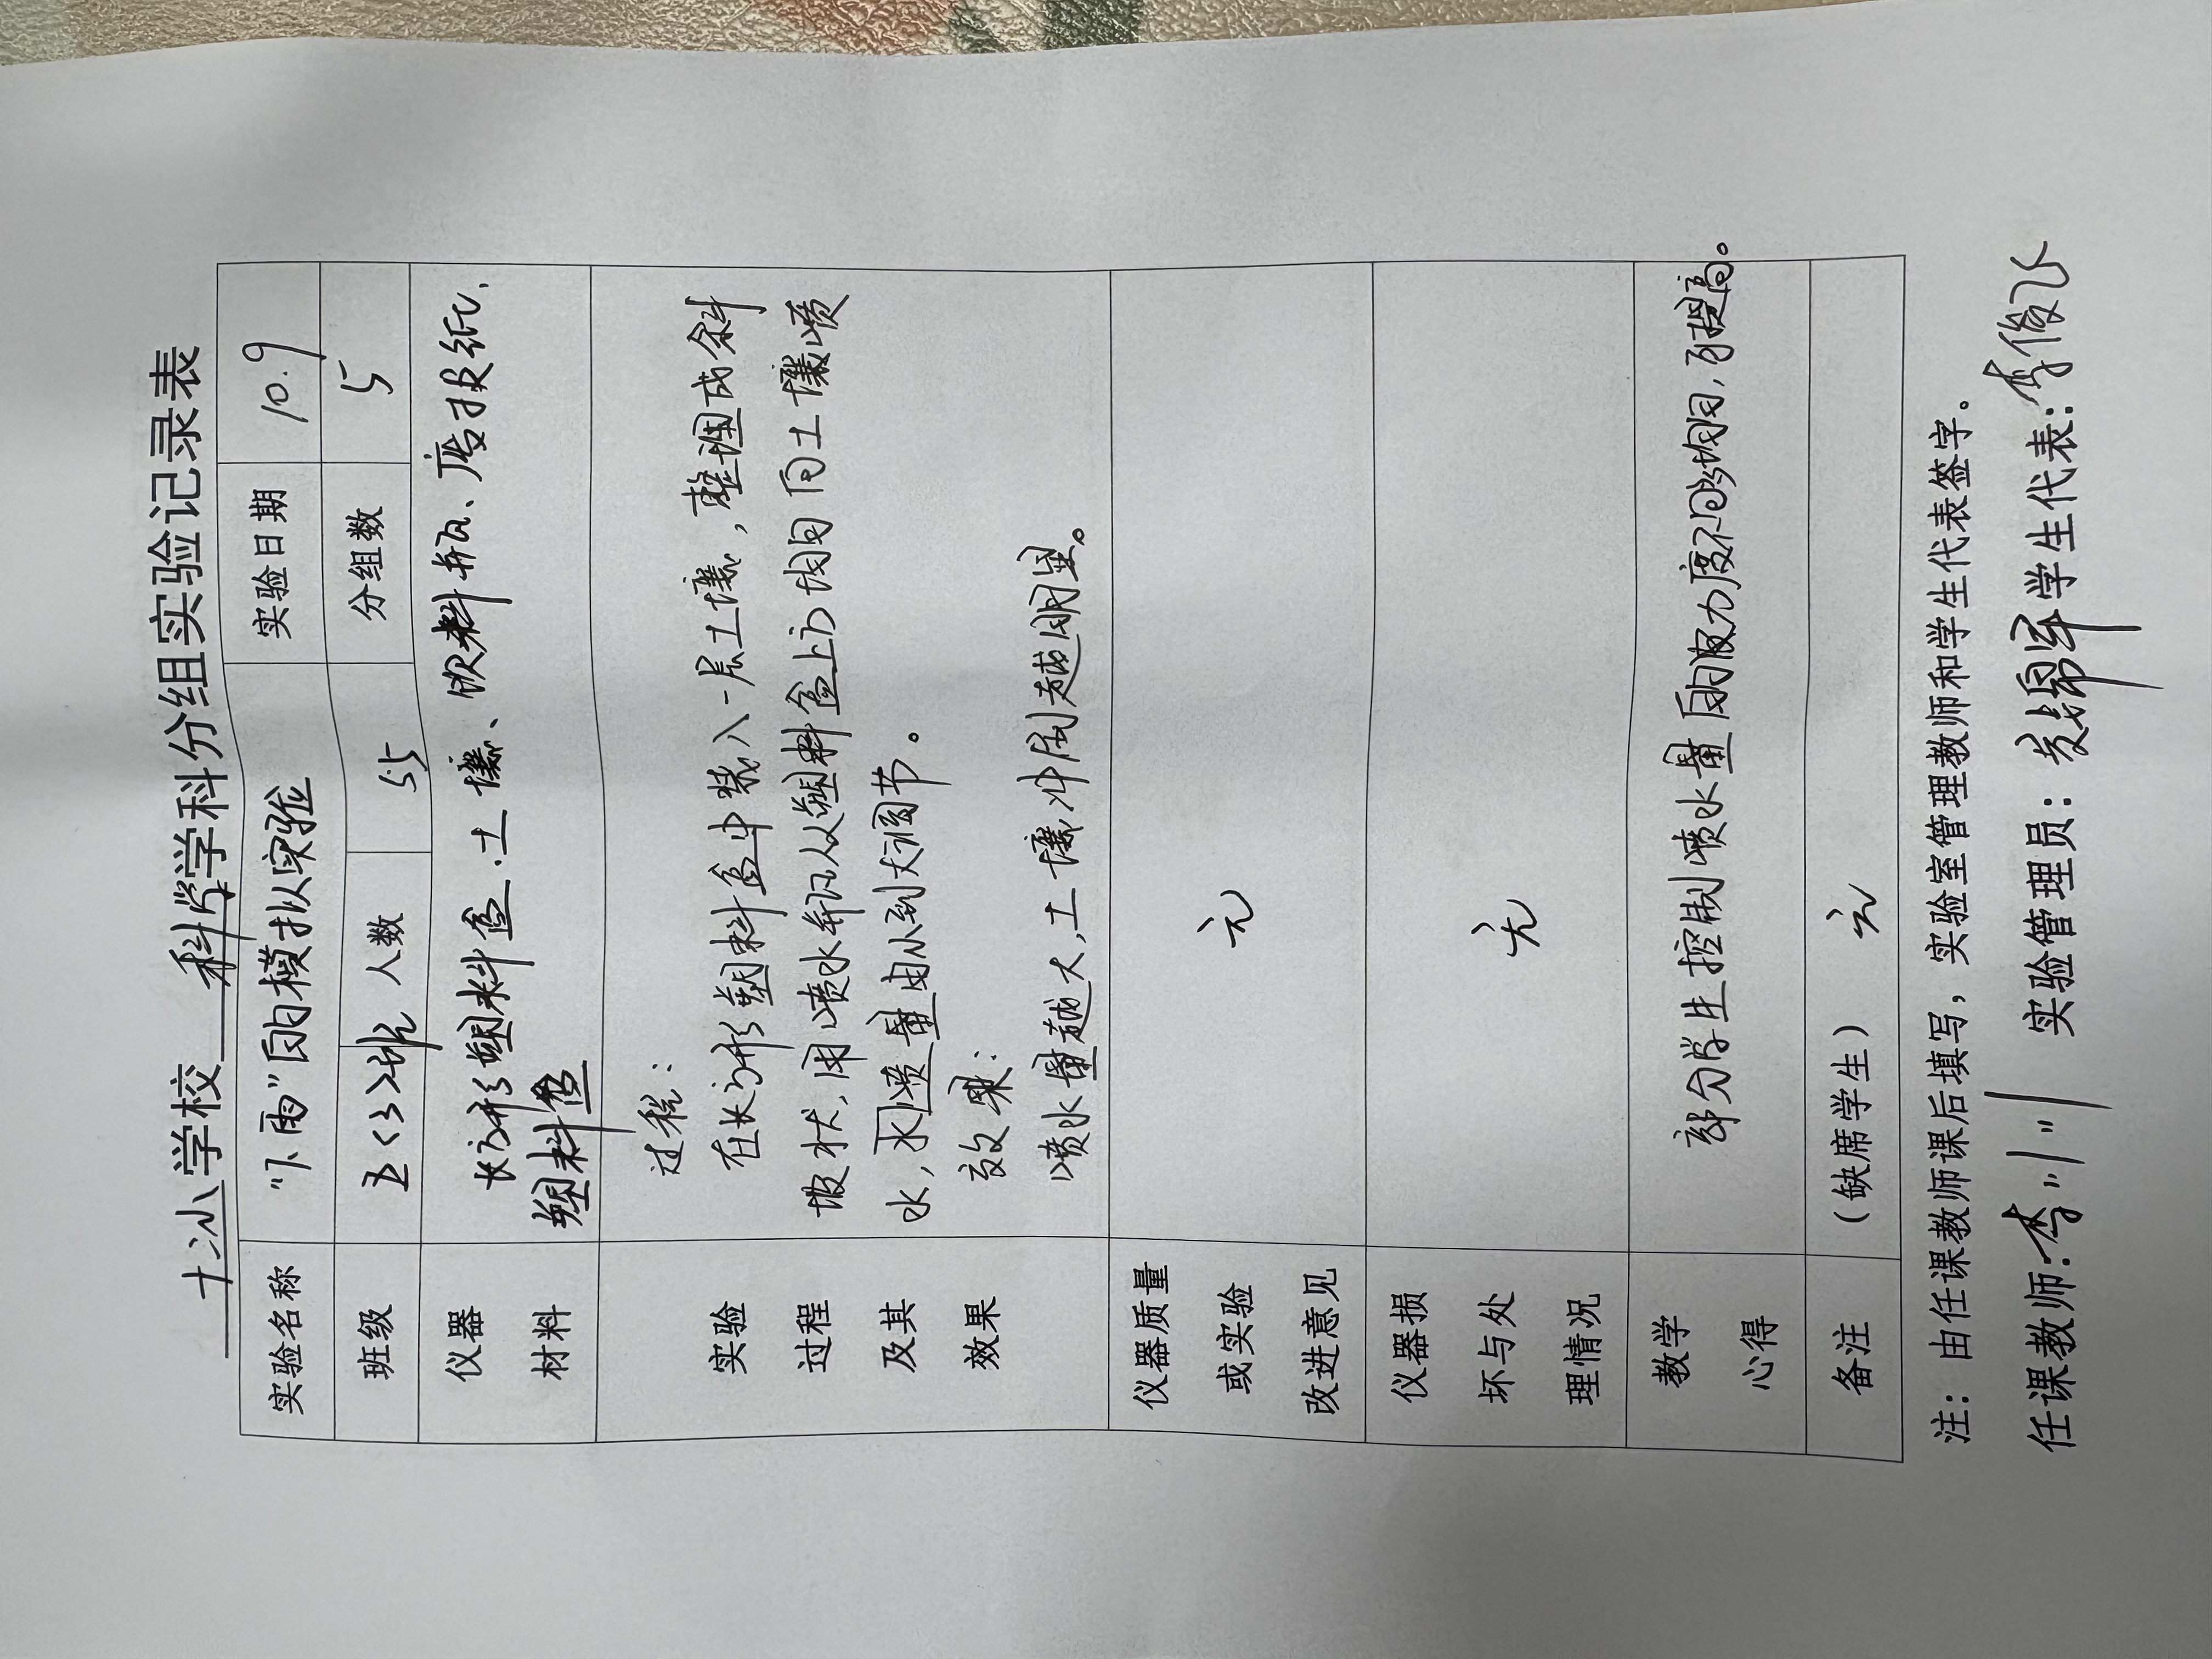 十冶小学校 科学学科分组实验记录表
实验名称 "下雨"的模拟实验 实验日期 10.9
班级 五<3>班 人数 55 分组数 5
仪器 材料 长方形塑料盒、土壤、饮料瓶、废报纸、
塑料盒
实验 过程 及其 效果
过程:
在长方形塑料盒中装入一层土壤,整理成斜
坡状,用喷水瓶从塑料盒上方均匀向土壤喷
水,水喷量由小到大调节。
效果:
喷水量越大,土壤冲刷越明显。
仪器质量 或实验 改进意见 无
仪器损 坏与处 理情况 无
教学 心得 部分学生控制喷水量的力度不够均匀,须提高。
备注 (缺席学生) 无
注:由任课教师课后填写,实验室管理教师和学生代表签字。
任课教师:李 实验管理员: 学生代表:李俊